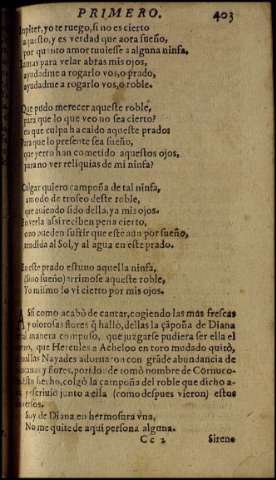 PRIMERO. 403
Iupiter, yo te ruego, si no es cierto
a questo, y es verdad que aora sueño,
por quanto amor tuuiesse a alguna ninfa,
jamas para velar abras mis ojos,
ayudadme a rogarlo vos, o prado,
ayudadme a rogarlo vos, o roble.
Que pudo merecer aqueste roble,
para que lo que veo no sea cierto?
en que culpa ha caido aqueste prado
para que lo presente sea sueño,
que yerro han cometido aquestos ojos,
para no ver reliquias de mi ninfa?
Colgar quiero çampoña de tal ninfa,
a modo de trofeo deste roble,
que auiendo sido della, ya mis ojos
en verla assi reciben pena cierto,
como pueden sufrir que este aun por sueño,
tendida al Sol, y al agua en este prado.
En este prado estuuo aquella ninfa,
(sino sueño) arrimose aqueste roble,
Yo mismo lo vi cierto por mis ojos.
ASsi como acabò de cantar, cogiendo las mas frescas
y olorosas flores q̃ hallò, dellas la çãpoña de Diana
tal manera compuso, que juzgarse pudiera ser ella el
que Hercules a Acheloo en toro mudado quitò,
Nayades adornaron con grãde abundancia de
y flores, por lo de tomò nombre de Cornuco-
Esto hecho, colgò la çampoña del roble que dicho a-
y escriuio junto a ella (como despues vieron) estos
versos.
Soy de Diana en hermosura vna,
No me quite de aqui persona alguna.
Cc 2 Sireno